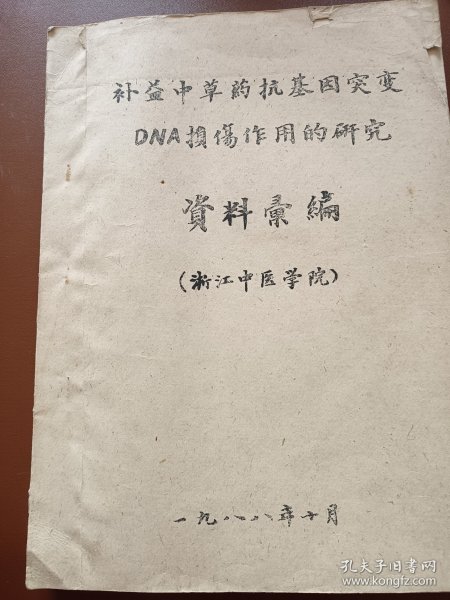 补益中草药抗基因突变
DNA損傷作用的研究
資料彙編
(浙江中医学院)
一九八八年十月
孔夫子旧书网
www.kongfz.com